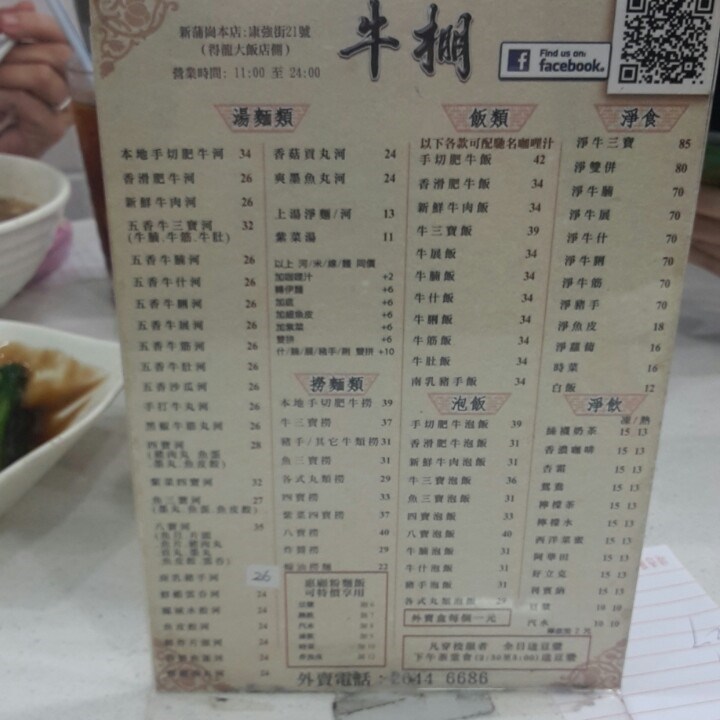 新蒲崗本店:康強街21號
(得龍大飯店側)
營業時間: 11:00 至 24:00
牛棚
Find us on:
facebook.
湯麵類
本地手切肥牛河 34
香滑肥牛河 26
新鮮牛肉河 26
五香牛三寶河 32
(牛腩.牛筋.牛肚)
五香牛腩河 26
五香牛什河 26
五香牛脷河 26
五香牛展河 26
五香牛筋河 26
五香牛肚河 26
五香沙瓜河 26
手打牛丸河 26
黑椒牛筋丸河 26
四寶河 28
紫菜四寶河 32
魚三寶河 27
(墨丸.魚蛋.魚皮餃)
八寶河 35
南乳豬手河 26
香菇貢丸河 24
爽墨魚丸河 24
上湯淨麵/河 13
紫菜湯 11
以上 河/米/麵 同價
加咖喱汁 +2
轉伊麵 +6
加底 +6
加紫菜 +6
雙拼 +6
什/腩/展/豬手/脷 雙拼 +10
撈麵類
本地手切肥牛撈 39
牛三寶撈 37
豬手/其它牛類撈 31
魚三寶撈 31
各式丸類撈 29
四寶撈 33
紫菜四寶撈 37
八寶撈 40
炸醬撈 29
蠔油撈麵 22
惠顧粉麵飯
可特價享用
飯類
以下各款可配馳名咖哩汁
手切肥牛飯 42
香滑肥牛飯 34
新鮮牛肉飯 34
牛三寶飯 39
牛展飯 34
牛腩飯 34
牛什飯 34
牛脷飯 34
牛筋飯 34
牛肚飯 34
南乳豬手飯 34
泡飯
手切肥牛泡飯 39
香滑肥牛泡飯 31
新鮮牛肉泡飯 31
牛三寶泡飯 36
魚三寶泡飯 31
四寶泡飯 33
八寶泡飯 40
牛腩泡飯 31
牛什泡飯 31
豬手泡飯 31
各式丸類泡飯 29
外賣盒每個一元
淨食
淨牛三寶 85
淨雙併 80
淨牛腩 70
淨牛展 70
淨牛什 70
淨牛脷 70
淨牛筋 70
淨豬手 70
淨魚皮 18
淨蘿蔔 16
時菜 16
白飯 12
淨飲
凍/熱
絲襪奶茶 15 13
香濃咖啡 15 13
杏霜 15 13
鴛鴦 15 13
檸檬茶 15 13
檸檬水 15 13
西洋菜蜜 15 13
阿華田 15 13
好立克 15 13
利賓納 15 13
豆漿 10 10
汽水 10
凡穿校服者 全日送豆漿
下午茶重會(2:30至5:00)送豆漿
外賣電話: 2644 6686